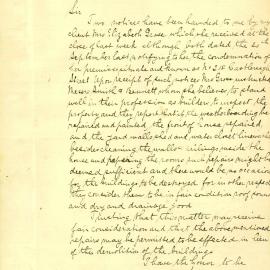 Sir
Two notices have been handed to me by my
client Mrs Elizabeth Gowe which she received at the
close of last week although both dated the 20th
September last notifying to her the condemnation of
her premises situate and known as No 24 Castlereagh
Street. Upon receipt of such notices Mrs Gowe instructed
Messrs Smith & Bennett whom she believes to stand
well in their profession as builders, to inspect the
property and they report that if the weatherboarding be
repaired and painted, the front of house repaired
and the yard walls shed and water closet limewashed
besides cleaning the walls & ceilings inside the
house and papering the rooms such repairs might be
deemed sufficient and there would be no occasion
for the buildings to be destroyed for in other respects
they consider them to be in fair condition roof sound
and dry and drainage good
Trusting that this matter may receive
fair consideration and that the above mentioned
repairs may be permitted to be effected in lieu
of the demolition of the buildings
I have the honor to be